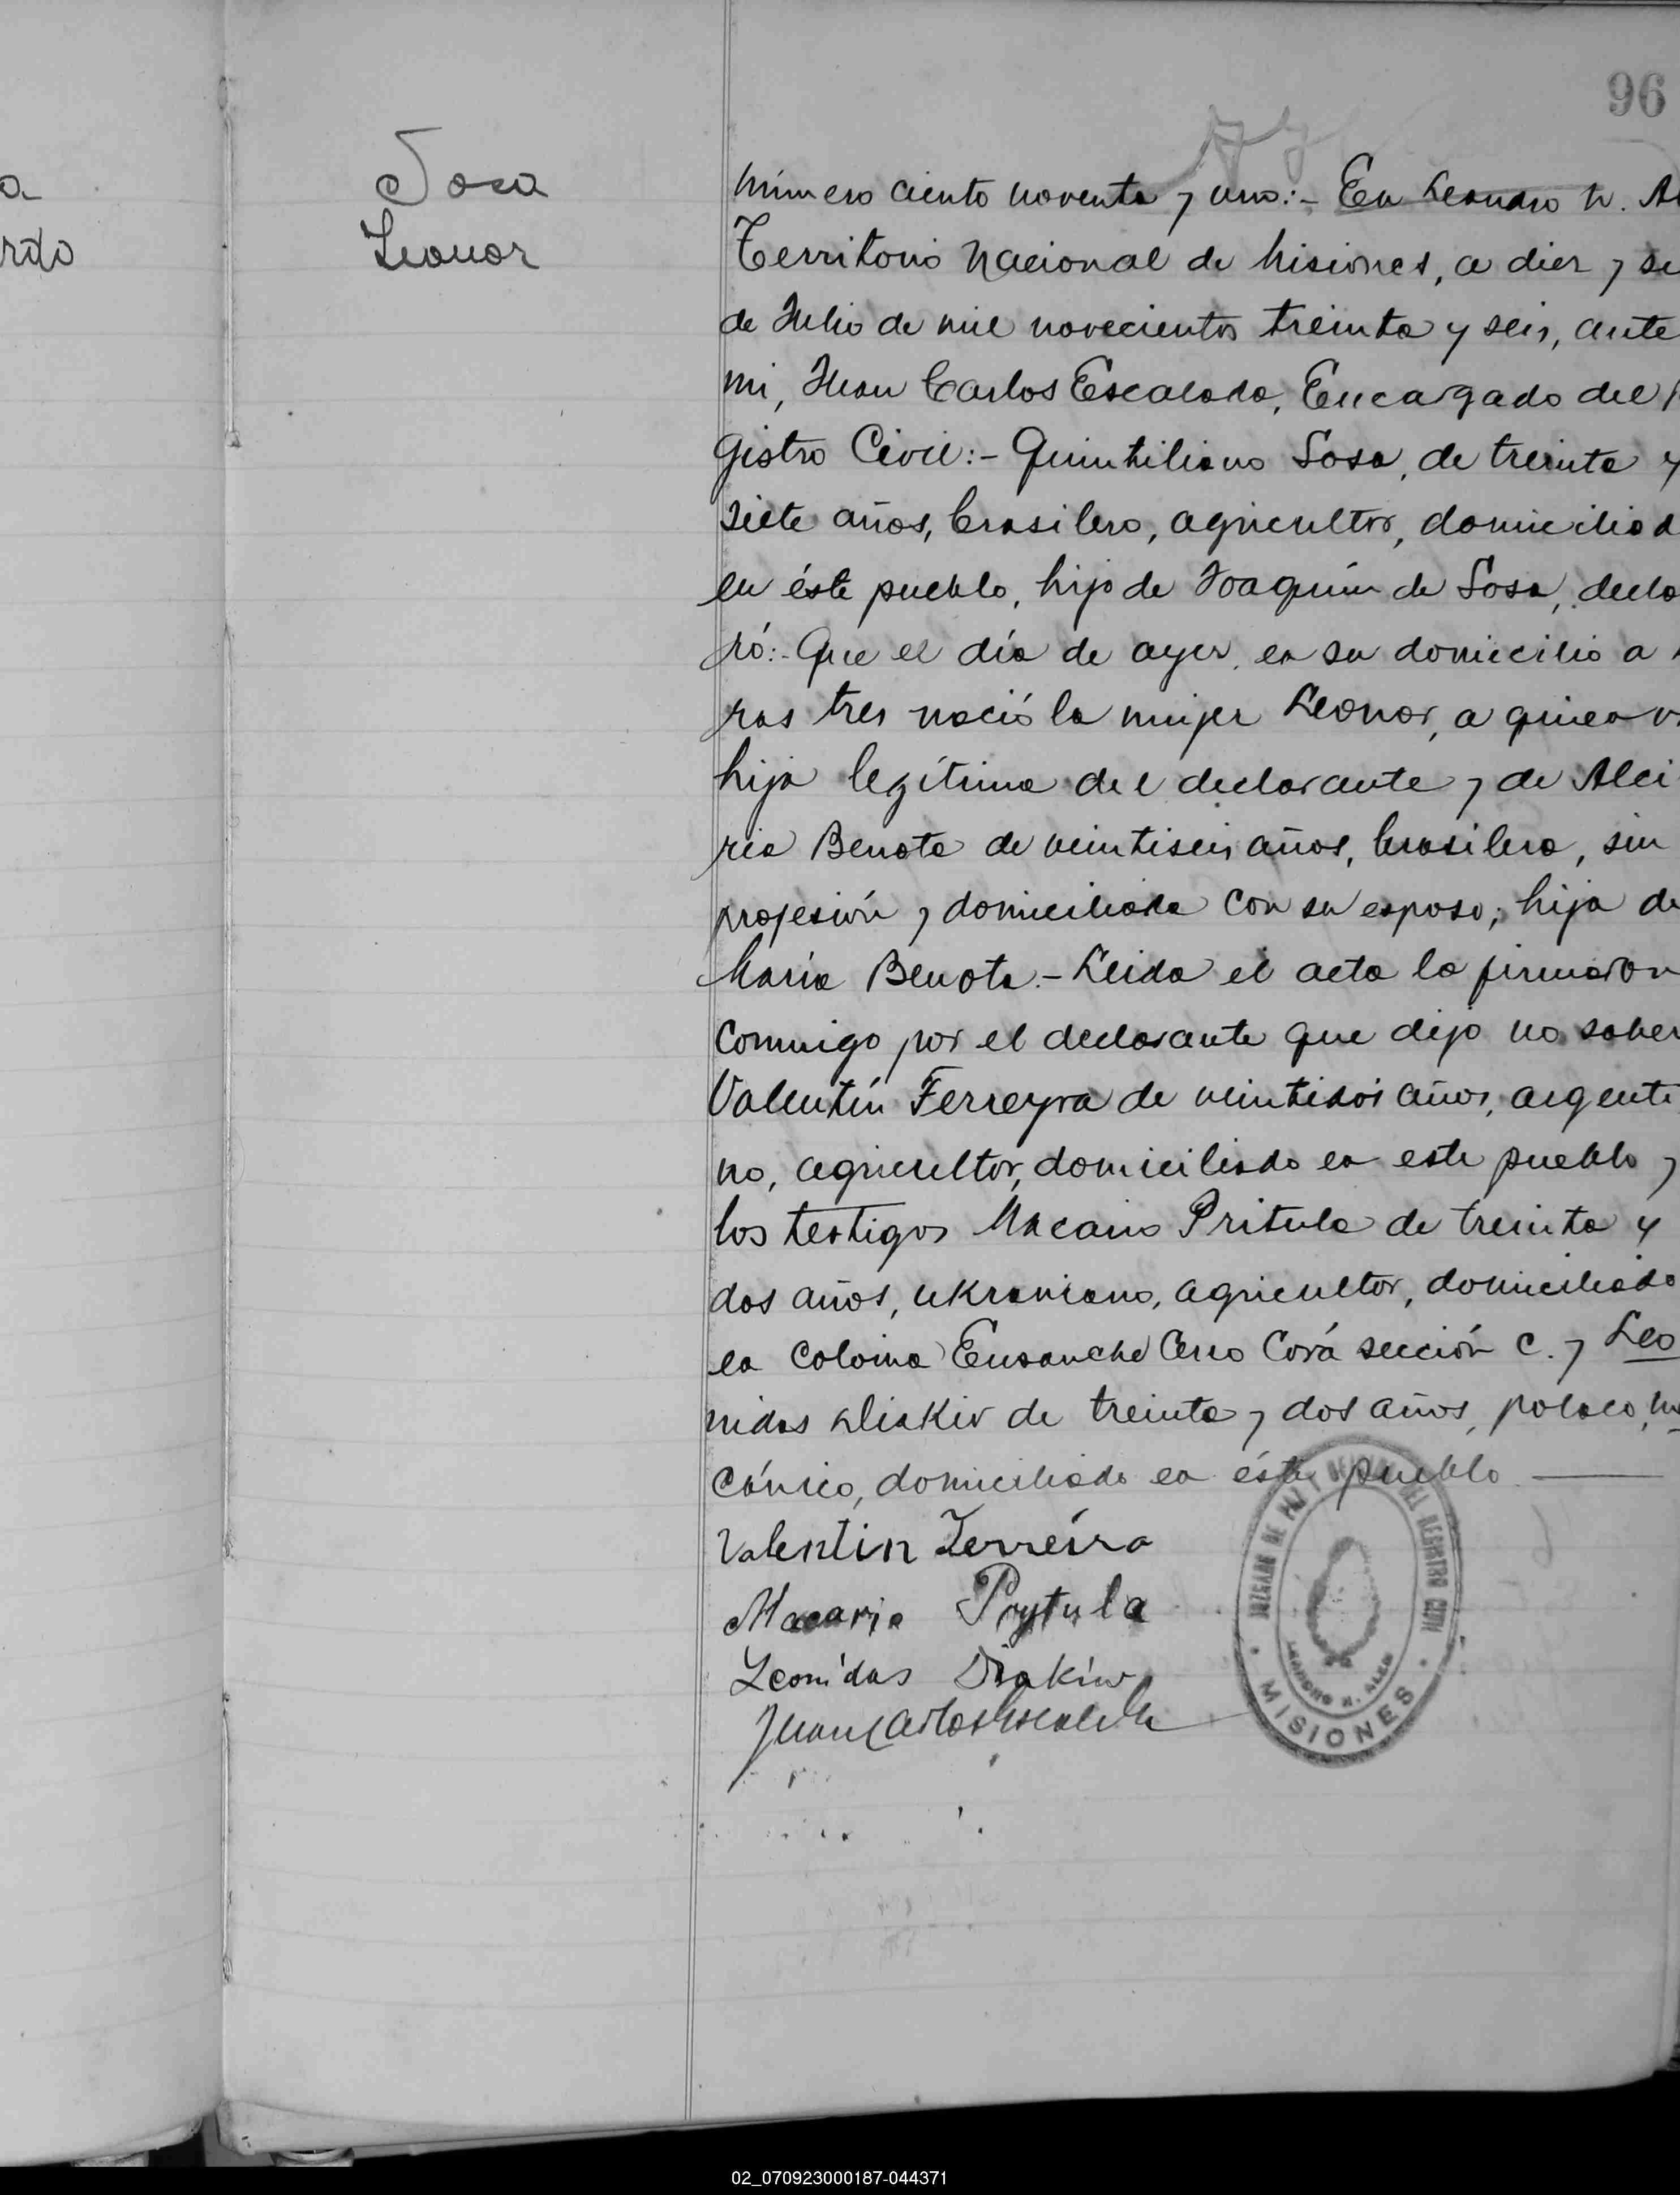 96
a
rdo
Sosa
Leonor
Número ciento noventa y uno:- En Leandro N. Al
Territorio Nacional de Misiones, a diez y se
de Julio de mil novecientos treinta y seis, ante
mi, Juan Carlos Escalada, Encargado del R
gistro Civil:- Quintiliano Sosa, de treinta y
siete años, brasilero, agricultor, domiciliad
en éste pueblo, hijo de Joaquín de Sosa, decla
ró:- Que el día de ayer, en su domicilio a h
ras tres nació la mujer Leonor, a quien v
hija legítima del declarante y de Alci
ria Benota de veintiseis años, brasilera, sin
profesión y domiciliada con su esposo; hija de
María Benota.- Leida el acta la firmaron
conmigo por el declarante que dijo no saber
Valentín Ferreyra de veintidós años, argenti
no, agricultor, domiciliado en este pueblo y
los testigos Macario Pritula de treinta y
dos años, ukraniano, agricultor, domiciliado
en colonia Ensanche Cerro Corá sección C. y Leo
nidas Diakiv de treinta y dos años, polaco, me
cánico, domiciliado en éste pueblo
Valentin Ferreira
Macario Prytula
Leonidas Diakiw
Juan Carlos Escalada
JUZGADO DE PAZ Y DEL REGISTRO CIVIL
LEANDRO N. ALEM
MISIONES
02_070923000187-044371